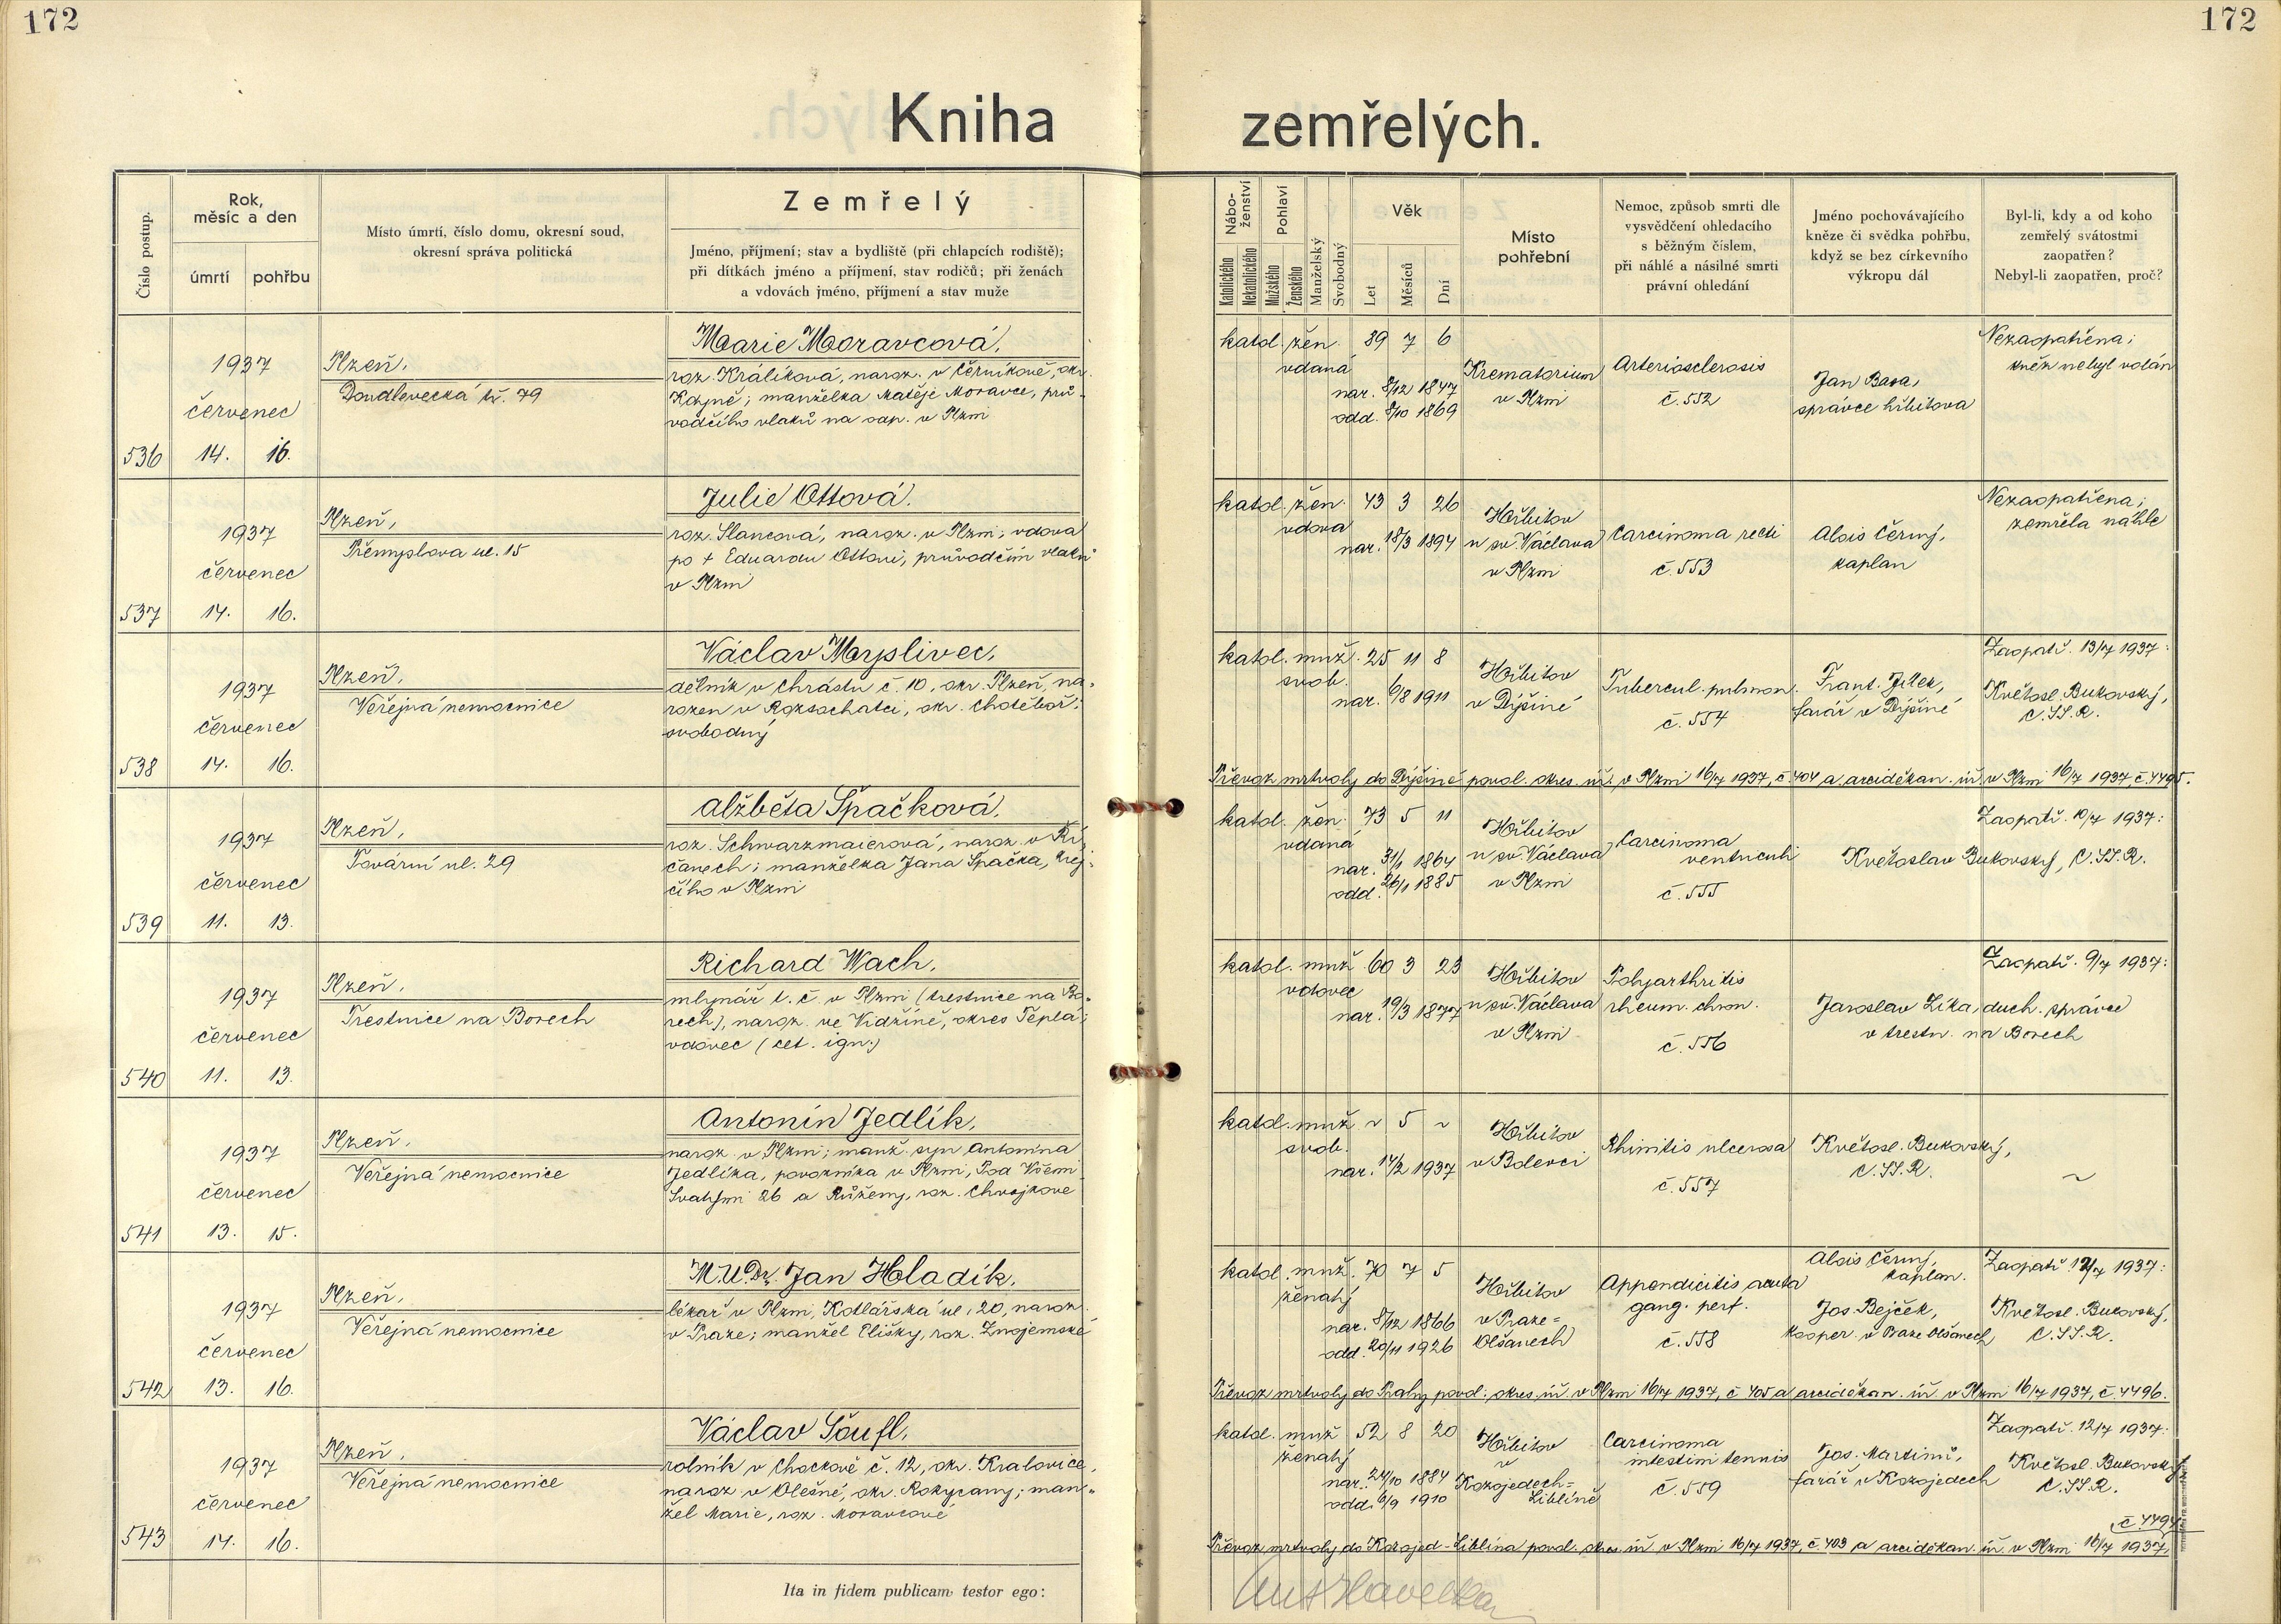 172
172
Kniha
zemřelých.
Číslo postup.
Rok,
měsíc a den
úmrtí
pohřbu
Místo úmrtí, číslo domu, okresní soud,
okresní správa politická
Zemřelý
Jméno, příjmení; stav a bydliště (při chlapcích rodiště);
při dítkách jméno a příjmení, stav rodičů; při ženách
a vdovách jméno, příjmení a stav muže
Nábo-
ženství
Katolického
Nekatolického
Pohlaví
Mužského
Ženského
Manželský
Svobodný
Věk
Let
Měsíců
Dní
Místo
pohřební
Nemoc, způsob smrti dle
vysvědčení ohledacího
s běžným číslem,
při náhlé a násilné smrti
právní ohledání
Jméno pochovávajícího
kněze či svědka pohřbu,
když se bez církevního
výkropu dál
Byl-li, kdy a od koho
zemřelý svátostmi
zaopatřen?
Nebyl-li zaopatřen, proč?
536
1937
červenec
14. 16.
Plzeň,
Doudlevecká tř. 79
Marie Moravcová,
roz. Králíková, naroz. v Černíkově, okr.
Kdyně; manželka Matěje Moravce, prů-
vodčího vlaků na odp. v Plzni
katol. žen. 89 7 6
vdaná
nar. 8/12 1847
odd. 8/10 1869
Krematorium
v Plzni
Arteriosclerosis
č. 552
Jan Basa,
správce hřbitova
Nezaopatřena;
kněz nebyl volán
537
1937
červenec
14. 16.
Plzeň,
Přemyslova ul. 15
Julie Ottová.
roz. Slancová, naroz. v Plzni; vdova
po † Eduardu Ottovi, průvodčím vlaků
v Plzni
katol. žen. 43 3 26
vdova
nar. 18/3 1894
Hřbitov
u sv. Václava
v Plzni
Carcinoma recti
č. 553
Alois Černý,
kaplan
Nezaopatřena;
zemřela náhle
538
1937
červenec
14. 16.
Plzeň,
Veřejná nemocnice
Václav Myslivec,
dělník v Chrástu č. 10, okr. Plzeň, na-
rozen v Rozsochatci, okr. Chotěboř;
svobodný
katol. muž. 25 11 8
svob.
nar. 6/8 1911
Hřbitov
v Dýšině
Tubercul. pulmon.
č. 554
Frant. Jílek,
farář v Dýšině
Zaopatř. 13/7 1937:
Květosl. Bukovský,
C.SS.R.
Převoz mrtvoly do Dýšiné povol. okres. úř. v Plzni 16/7 1937, č. 404 a arciděkan. úř. v Plzni 16/7 1937, č. 4495.
539
1937
červenec
11. 13.
Plzeň,
Tovární ul. 29
Alžběta Špačková,
roz. Schwarzmaierová, naroz. v Ří-
čanech; manželka Jana Špačka, krej-
čího v Plzni
katol. žen. 73 5 11
vdaná
nar. 31/1 1864
odd. 26/1 1885
Hřbitov
u sv. Václava
v Plzni
Carcinoma
ventriculi
č. 555
Zaopatř. 10/7 1937:
Květoslav Bukovský, C.SS.R.
540
1937
červenec
11. 13.
Plzeň,
Trestnice na Borech
Richard Wach,
mlynář t. č. v Plzni (trestnice na Bo-
rech), naroz. ve Vidžíně, okres Teplá;
vdovec (cet. ign.)
katol. muž 60 3 23
vdovec
nar. 19/3 1877
Hřbitov
u sv. Václava
v Plzni
Polyarthritis
rheum. chron.
č. 556
Zaopatř. 9/7 1937:
Jaroslav Zika, duch. správce
v trestn. na Borech
541
1937
červenec
13. 15.
Plzeň,
Veřejná nemocnice
Antonín Jedlík,
naroz. v Plzni; manž. syn Antonína
Jedlíka, povozníka v Plzni, Pod Všemi
Svatými 26 a Růženy, roz. Chvojkové
katol. muž ~ 5 ~
svob.
nar. 14/2 1937
Hřbitov
v Bolevci
Rhinitis ulcerosa
č. 557
Květosl. Bukovský,
C.SS.R.
~
542
1937
červenec
13. 16.
Plzeň,
Veřejná nemocnice
M.U.Dr. Jan Hladík,
lékař v Plzni, Kotlářská ul. 20, naroz.
v Praze; manžel Elišky, roz. Znojemské
katol. muž. 70 7 5
ženatý
nar. 8/12 1866
odd. 20/11 1926
Hřbitov
v Praze-
Olšanech
Appendicitis acuta
gang. perf.
č. 558
Alois Černý,
kaplan.
Jos. Bejček,
kooper. v Praze Olšanech
Zaopatř. 12/7 1937:
Květosl. Bukovský,
C.SS.R.
Převoz mrtvoly do Prahy povol. okres. úř. v Plzni 16/7 1937, č. 405 a arciděkan. úř. v Plzni 16/7 1937, č. 4496.
543
1937
červenec
14. 16.
Plzeň,
Veřejná nemocnice
Václav Šoufl,
rolník v Chockově č. 12, okr. Kralovice,
naroz. v Olešné, okr. Rokycany; man-
žel Marie, roz. Moravcové
katol. muž 52 8 20
ženatý
nar. 24/10 1884
odd. 6/9 1910
Hřbitov
v
Kozojedech-
Liblíně
Carcinoma
intestini tenuis
č. 559
Jos. Martinů,
farář v Kozojedech
Zaopatř. 12/7 1937:
Květosl. Bukovský
C.SS.R.
Převoz mrtvoly do Kozojed-Liblína povol. okres. úř. v Plzni 16/7 1937, č. 403 a arciděkan. úř. v Plzni 16/7 1937,
Ita in fidem publicam testor ego: